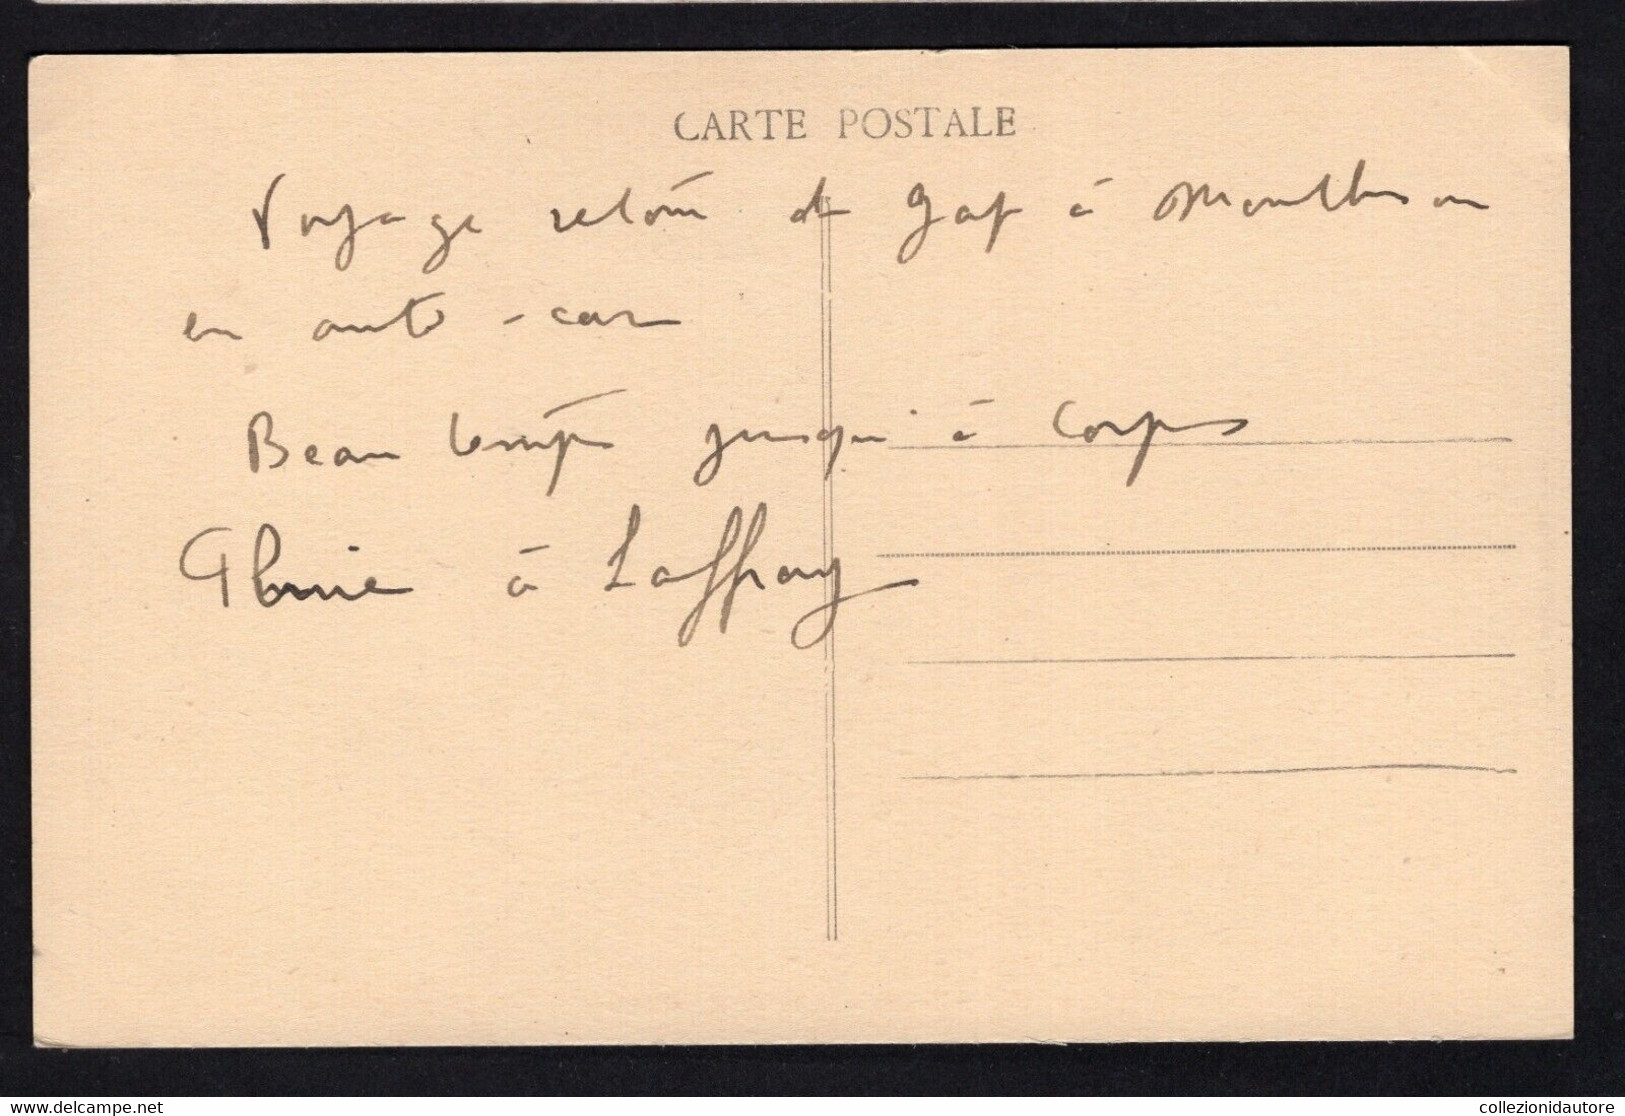 CARTE POSTALE
Voyage retour de Gap à Montbrison
en auto-car
Beau temps jusqu'à Corps
Pluie à Laffrey
collezionidautore